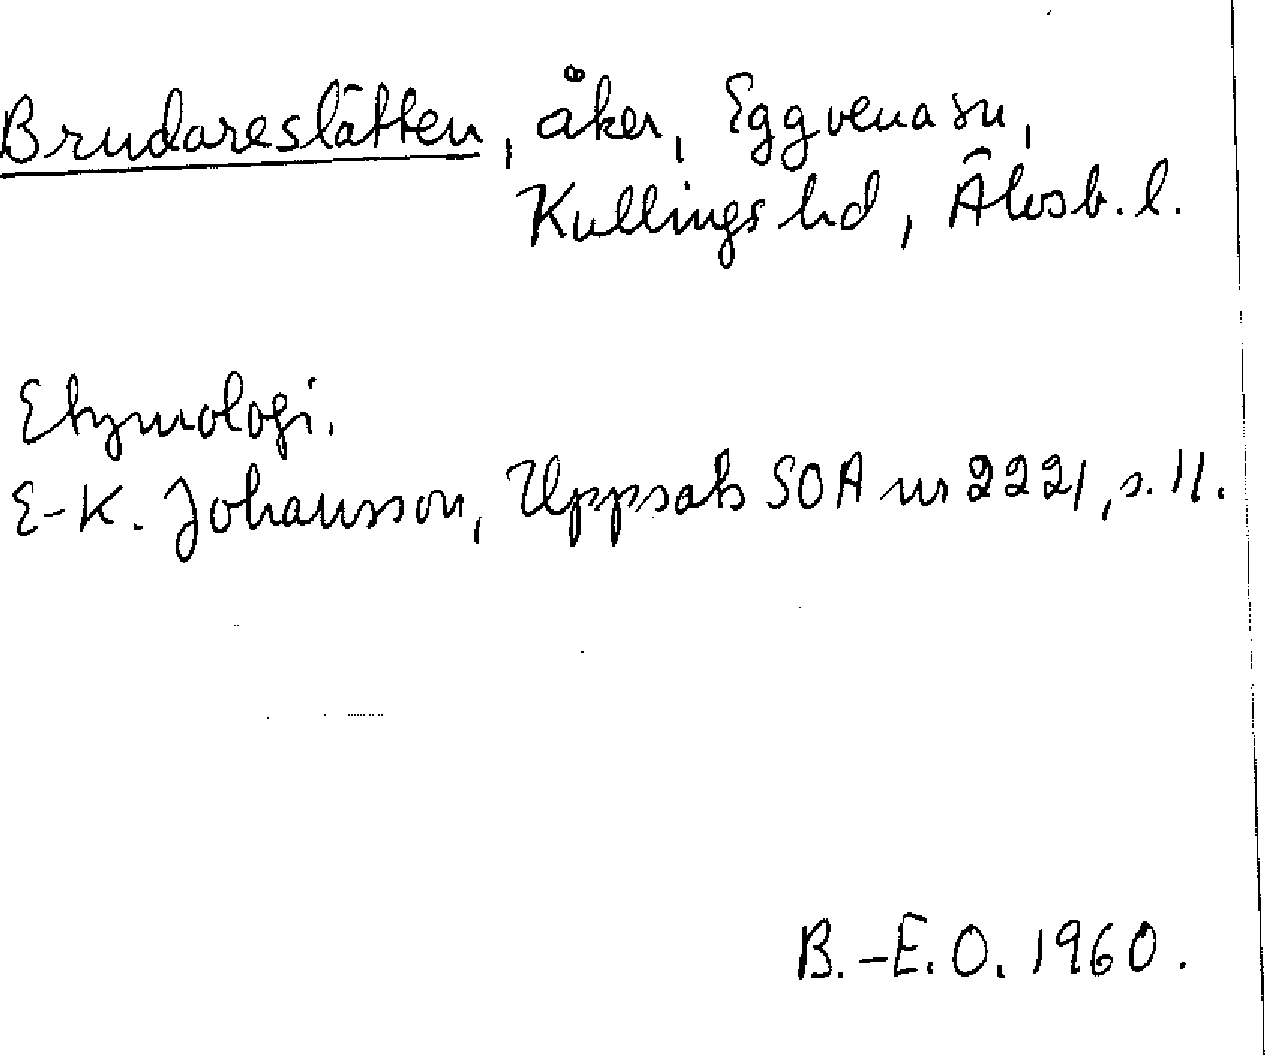 Brudareslätten, åker, Eggvena sn,
Kullings hd, Älvsb. l.
Etymologi.
E-K. Johansson, Uppsats SOA nr 2221, s. 11.
B.-E.O. 1960.